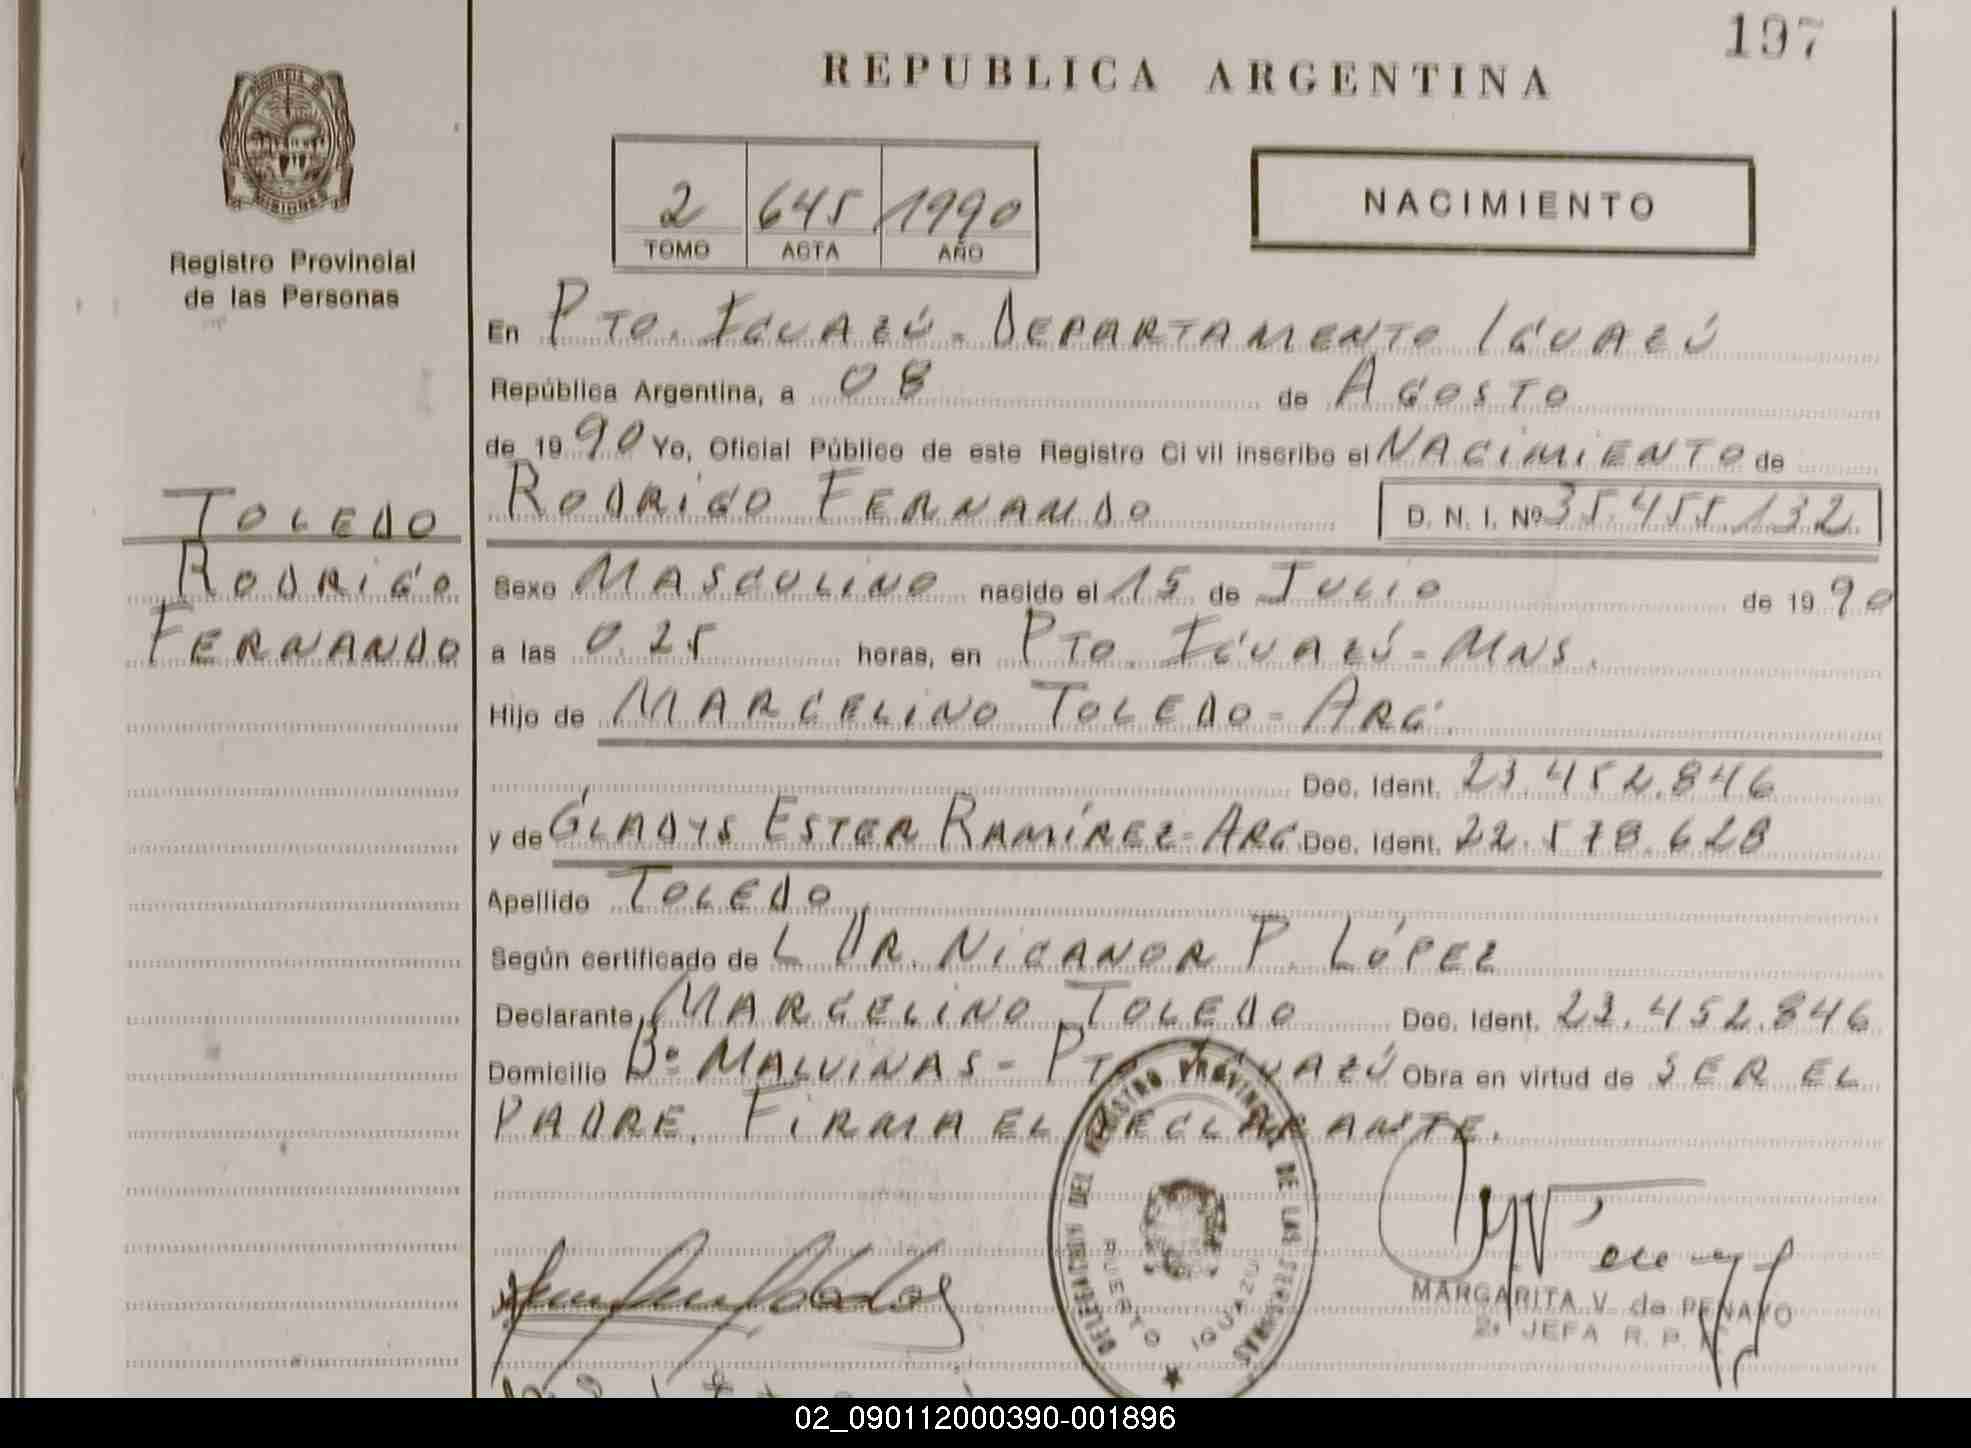 197
REPUBLICA ARGENTINA
PROVINCIA D MISIONES
Registro Provincial
de las Personas
2 645 1990
TOMO ACTA AÑO
NACIMIENTO
En PTO. IGUAZÚ - DEPARTAMENTO IGUAZÚ
República Argentina, a 08 de AGOSTO
de 1990 Yo, Oficial Público de este Registro Civil inscribo el NACIMIENTO de
RODRIGO FERNANDO D. N. I. Nº 35.455.132
TOLEDO
RODRIGO
FERNANDO
Sexo MASCULINO nacido el 15 de JULIO de 1990
a las 0.25 horas, en PTO. IGUAZÚ - MNS.
Hijo de MARCELINO TOLEDO - ARG.
Doc. Ident. 23.452.846
y de GLADYS ESTER RAMÍREZ - ARG Doc. Ident. 22.578.628
Apellido TOLEDO
Según certificado de L DR. NICANOR P. LÓPEZ
Declarante MARCELINO TOLEDO Doc. Ident. 23.452.846
Domicilio Bº MALVINAS - PTO IGUAZÚ Obra en virtud de SER EL
PADRE. FIRMA EL DECLARANTE.
DELEGACION DEL REGISTRO PROVINCIAL DE LAS PERSONAS
PUERTO IGUAZU
MARGARITA V. de PENAYO
2º JEFA R. P.
02_090112000390-001896